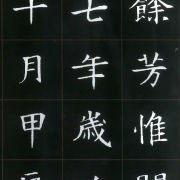 餘芳惟
七年歳
十月甲